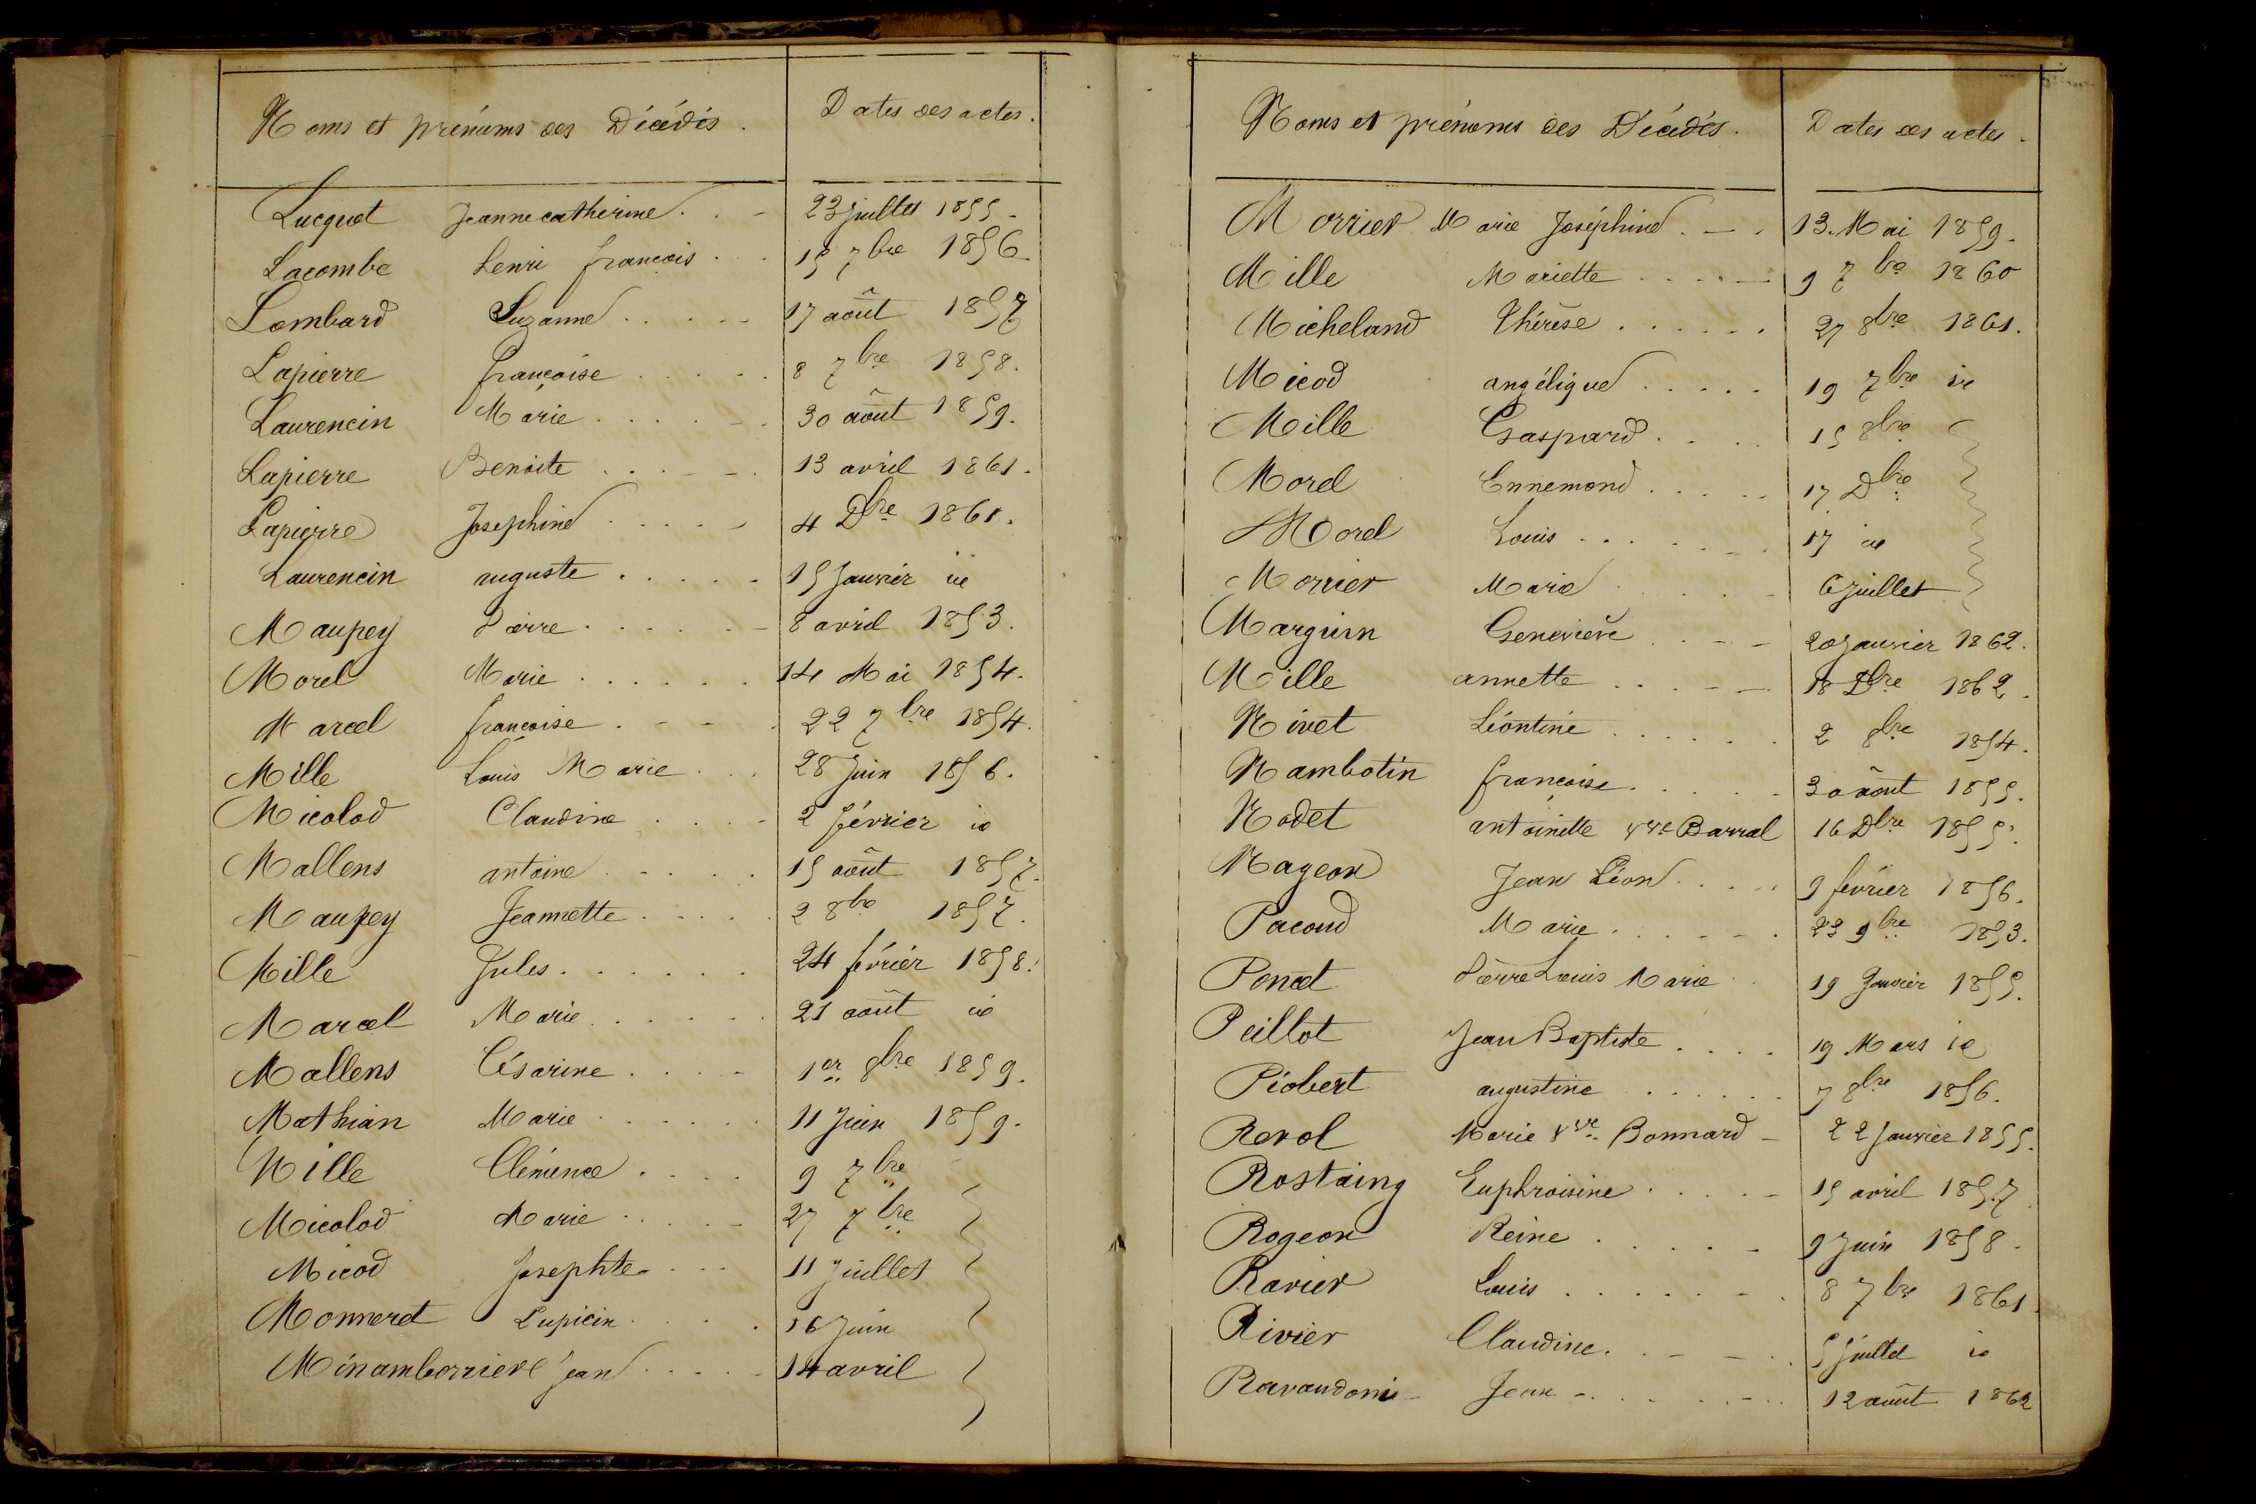 Noms et prénoms des Décédés. Dates des actes.
Lucquet Jeanne catherine 23 juillet 1855
Lacombe henri françois 15 7bre 1856
Lombard Suzanne 17 août 1857
Lapierre françoise 8 7bre 1858.
Laurencin Marie 30 août 1859.
Lapierre Benoite 13 avril 1861.
Lapierre Josephine 4 Dbre 1861.
Laurencin auguste 15 Janvier id
Maupey Pierre 8 avril 1853.
Morel Marie 14 Mai 1854.
Marcel françoise 22 7bre 1854.
Mille Louis Marie 28 Juin 1856.
Micolod Claudine 2 février id
Mallens antoine 15 août 1857.
Maupey Jeannette 2 8bre 1857.
Mille Jules 24 février 1858.
Marcel Marie 21 août id
Mallens Césarine 1er 8bre 1859.
Mathian Marie 11 Juin 1859.
Mille Clémence 9 7bre
Micolod Marie 27 7bre
Micod Josephte 11 Juillet
Monneret Lupicin 16 Juin
Minamborriere Jean 14 avril
Noms et prénoms des Décédés. Dates des actes.
Morrier Marie Joséphine 13 Mai 1859.
Mille Mariette 9 7bre 1860
Micheland Thérèse 27 8bre 1861.
Micod angélique 19 7bre id
Mille Gaspard 15 8bre
Morel Ennemond 17 Dbre
Morel Louis 17 id
Morrier Marie 6 Juillet
Marguin Geneviève 20 Janvier 1862.
Mille annette 18 Dbre 1862.
Nivet Léontine 2 8bre 1854.
Nambotin françoise 30 août 1855.
Nodet antoinette vve Barral 16 Dbre 1855.
Nageon Jean Léon 9 février 1856.
Pacoud Marie 23 9bre 1853.
Poncet Pierre Louis Marie 19 Janvier 1855.
Peillot Jean Baptiste 19 Mars id
Piobert augustine 7 8bre 1856.
Revol Marie vve Bonnard 22 Janvier 1855.
Rostaing Euphroisine 15 avril 1857
Rogeon Reine 9 Juin 1858.
Ravier Louis 8 7bre 1861.
Rivier Claudine 5 Juillet id
Ravaudoni Jean 12 août 1862